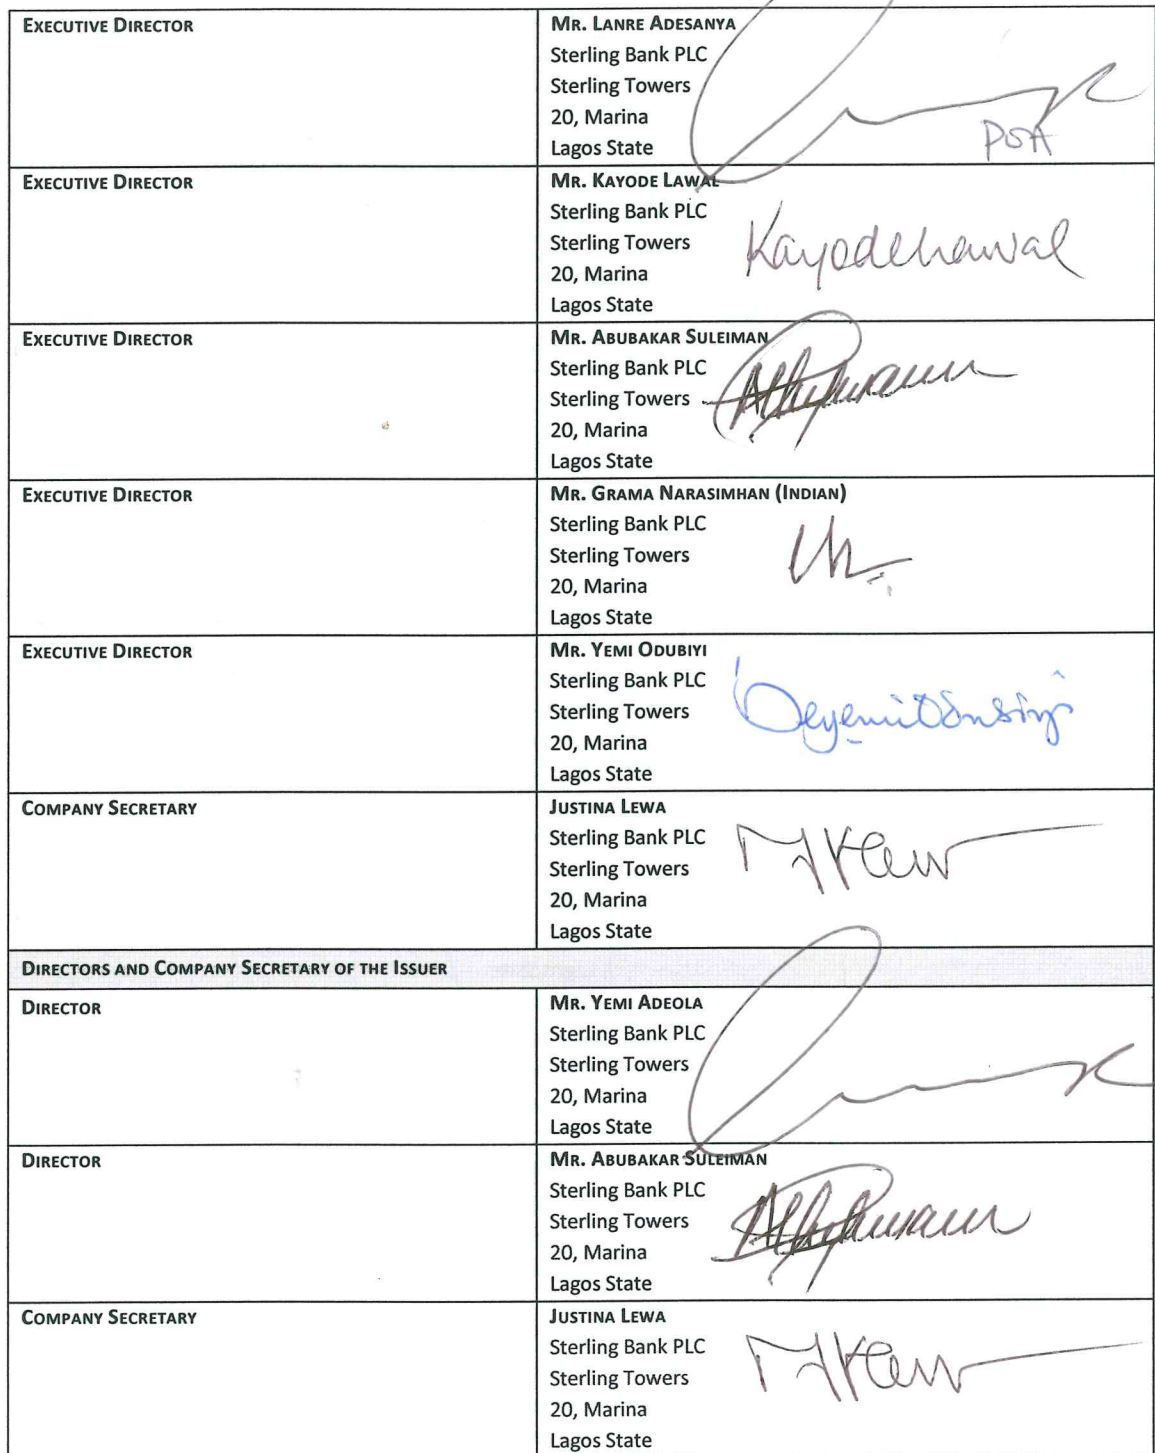 EXECUTIVE DIRECTOR
MR. LANRE ADESANYA
Sterling Bank PLC
Sterling Towers
20, Marina
Lagos State
POA
EXECUTIVE DIRECTOR
MR. KAYODE LAWAL
Sterling Bank PLC
Sterling Towers
20, Marina
Lagos State
Kayodelawal
EXECUTIVE DIRECTOR
MR. ABUBAKAR SULEIMAN
Sterling Bank PLC
Sterling Towers
20, Marina
Lagos State
EXECUTIVE DIRECTOR
MR. GRAMA NARASIMHAN (INDIAN)
Sterling Bank PLC
Sterling Towers
20, Marina
Lagos State
EXECUTIVE DIRECTOR
MR. YEMI ODUBIYI
Sterling Bank PLC
Sterling Towers
20, Marina
Lagos State
COMPANY SECRETARY
JUSTINA LEWA
Sterling Bank PLC
Sterling Towers
20, Marina
Lagos State
DIRECTORS AND COMPANY SECRETARY OF THE ISSUER
DIRECTOR
MR. YEMI ADEOLA
Sterling Bank PLC
Sterling Towers
20, Marina
Lagos State
DIRECTOR
MR. ABUBAKAR SULEIMAN
Sterling Bank PLC
Sterling Towers
20, Marina
Lagos State
COMPANY SECRETARY
JUSTINA LEWA
Sterling Bank PLC
Sterling Towers
20, Marina
Lagos State